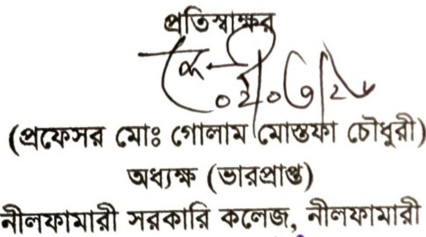 প্রতিস্বাক্ষর
(প্রফেসর মোঃ গোলাম মোস্তফা চৌধুরী)
অধ্যক্ষ (ভারপ্রাপ্ত)
নীলফামারী সরকারি কলেজ, নীলফামারী